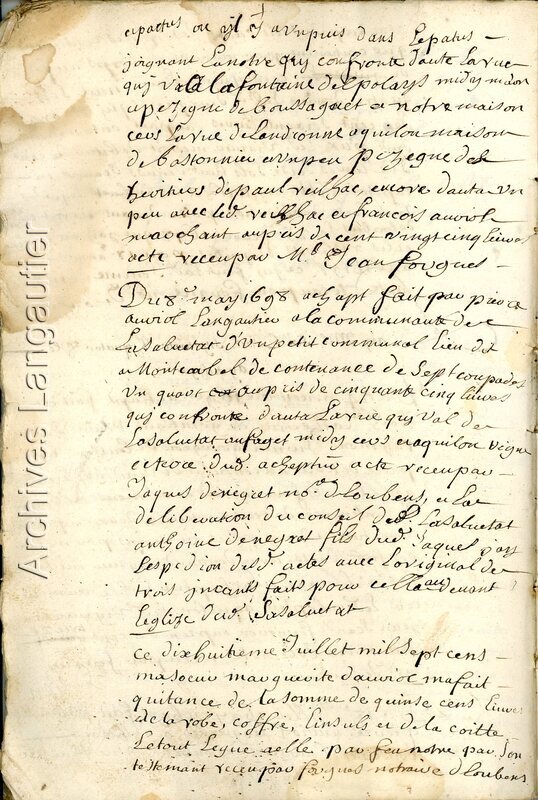 epactus ou yl y a un puis dans le patus
joignant la notre quy confronte d'auta la rue
quy va a la fontaine del polarys midy maison
a pezegne de boussaguet et notre maison
cers la rue de landronne aquilon maison
de bastonnier et un peu pezegne des
heritiers de paul veilhac, encore d'auta un
peu avec led. veilhac et françois auriol
marchant au pris de cent vingt cinq livres
acte receu par Me Jean fouques
Du 8e may 1698 achapt fait par pierre
auriol Langautier a la communauté de
Lasalvetat d'un petit communal lieu dit
a Montcabel de contenance de sept coupades
un quart au pris de cinquante cinq livres
quy confronte d'auta la rue quy va de
Lasalvetat au faget midy cers et aquilon vigne
et terre dud. achepteur acte receu par
Jaques denegret nore de Loubens, et la
deliberation du conseil de Lasalvetat
anthoine denegret fils dud. Jaques
l'espedion desd. actes avec l'original de
trois incants faits pour cella au devant
l'eglize dud. Lasalvetat
ce dixhuitieme Juillet mil sept cens
ma soeur marguerite d'auriol m'a fait
quitance de la somme de quinse cens livres
de la robe, coffre, linsuls et de la coitte
le tout legué a elle par feu notre par son
testemant receu par fouques notaire de Loubens
Archives Langautier